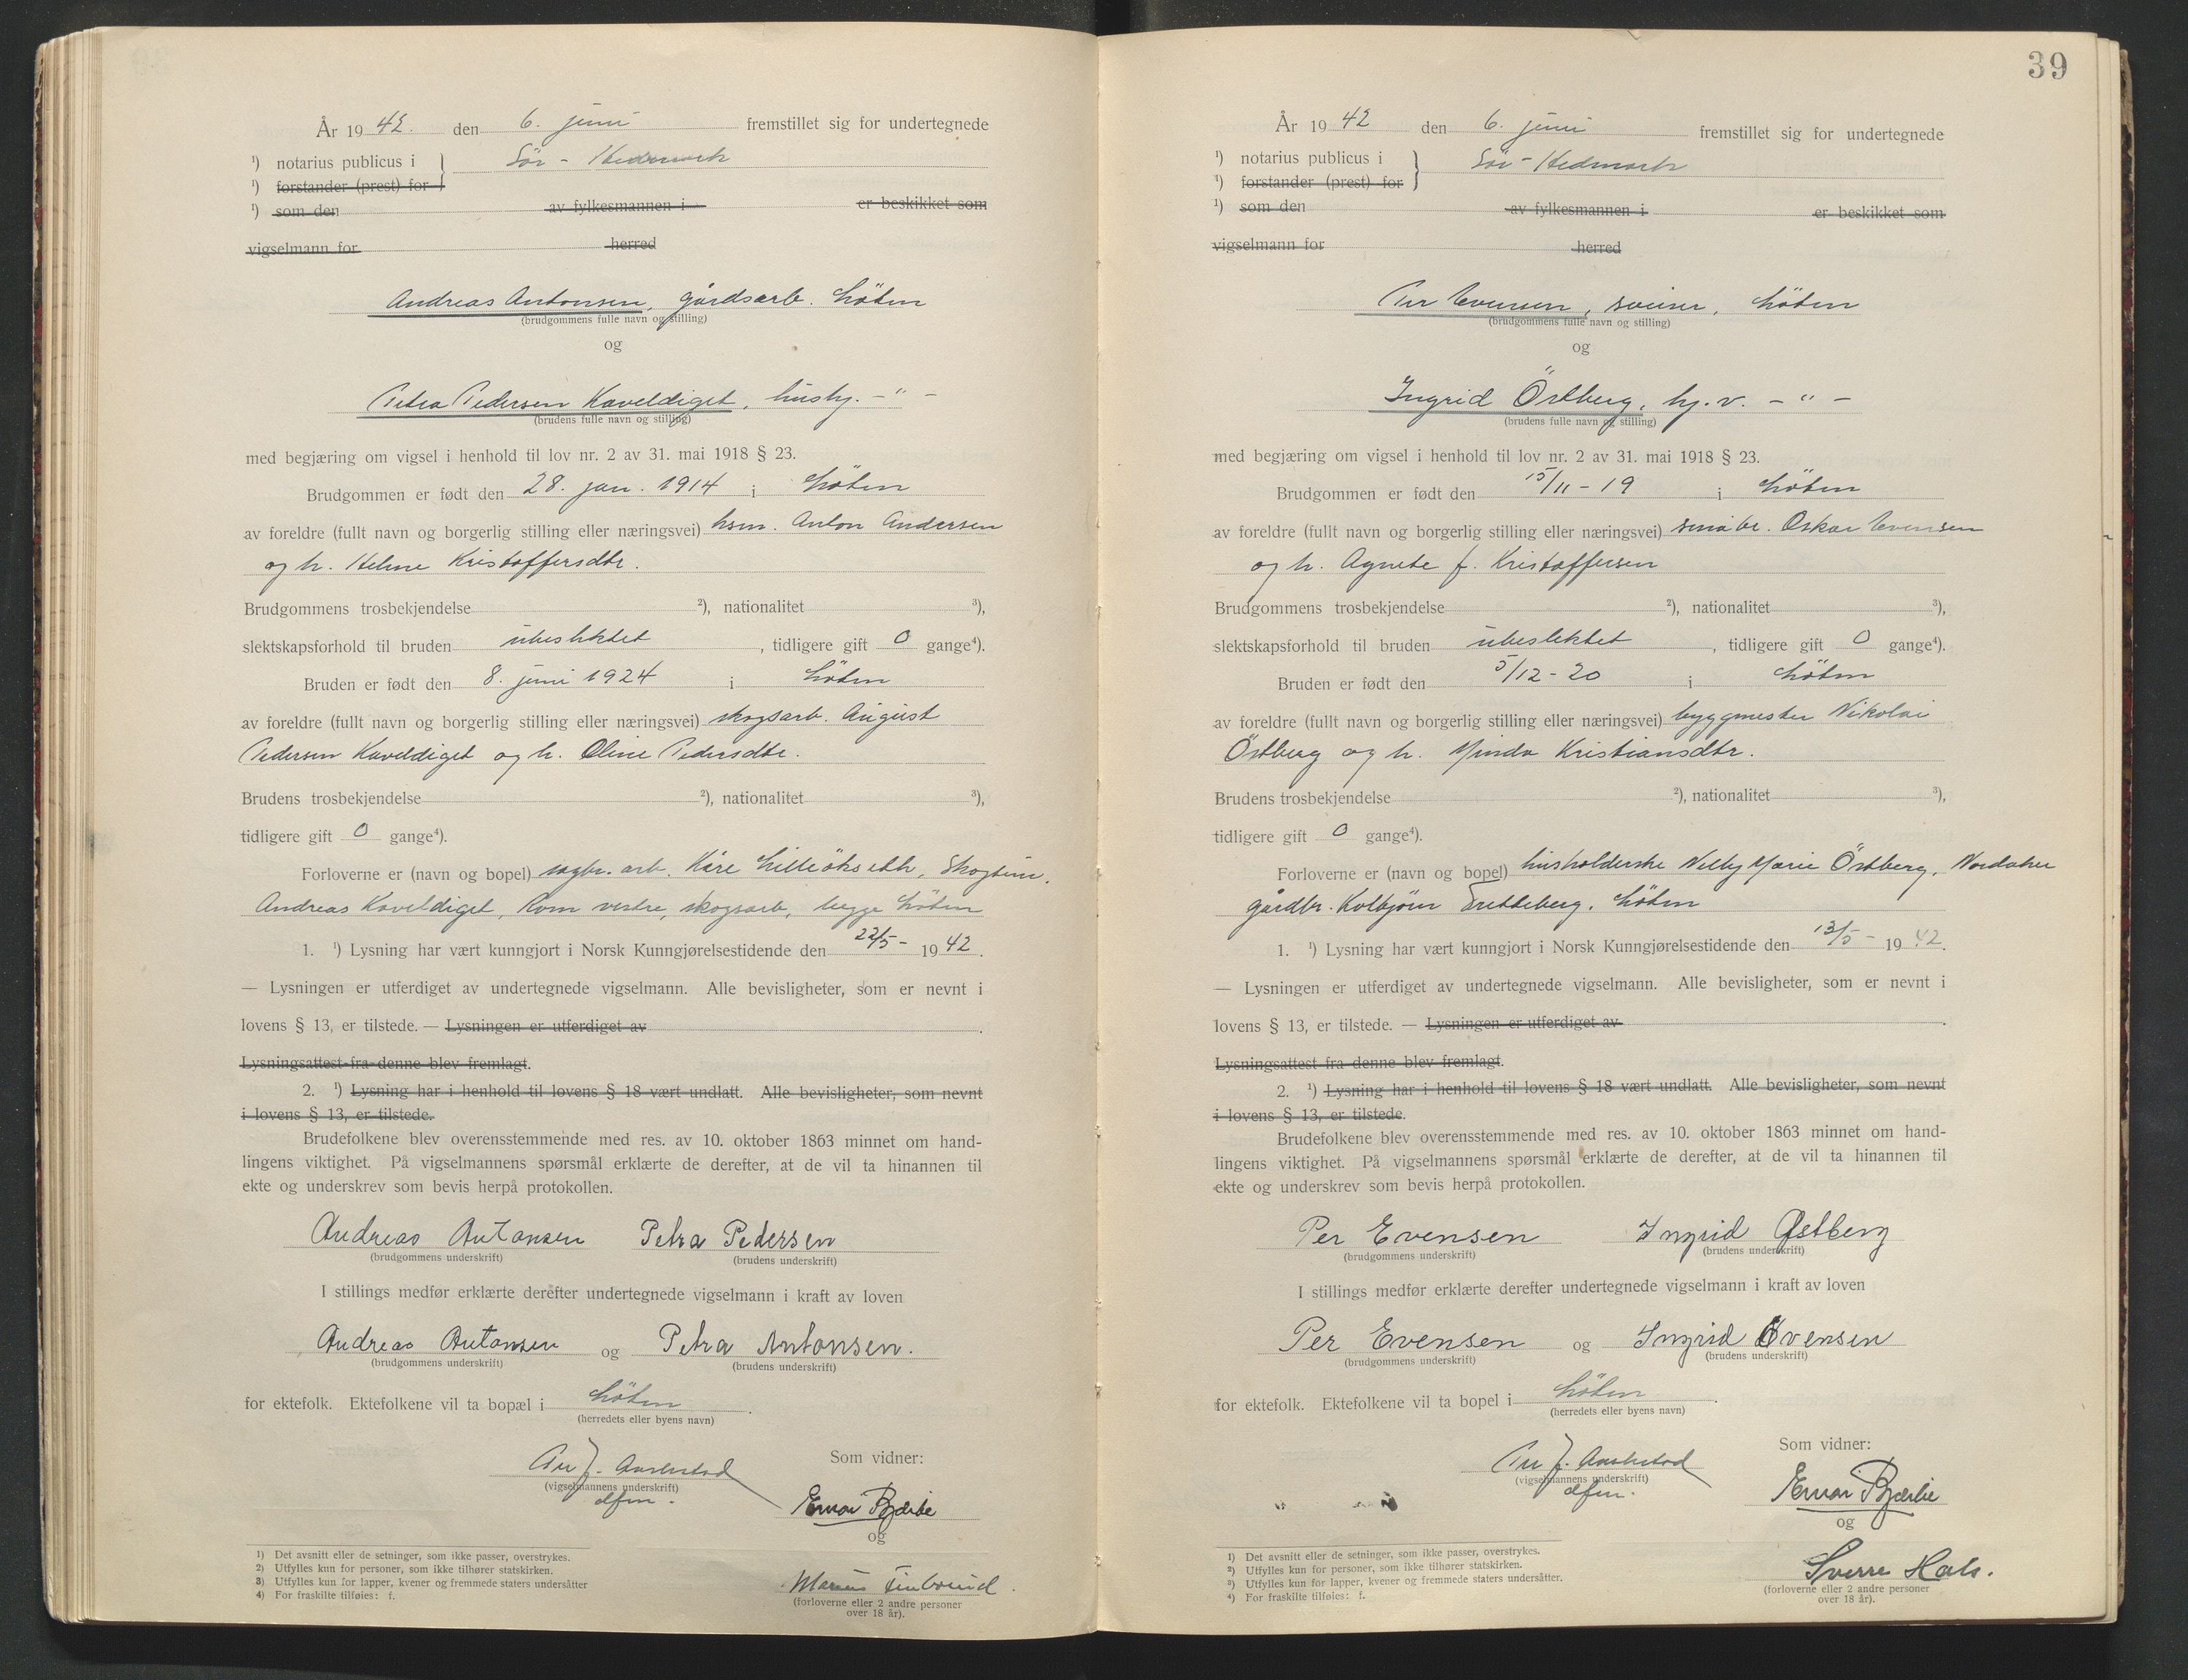 År 1942. den 6. juni fremstillet sig for undertegnede
¹) notarius publicus i } Sör-Hedmark
¹) forstander (prest) for
¹) som den av fylkesmannen i er beskikket som
vigselmann for herred
Andreas Antonsen, gårdsarb. Löten
(brudgommens fulle navn og stilling)
og
Petra Pedersen Kaveldiget, hushj. - " -
(brudens fulle navn og stilling)
med begjæring om vigsel i henhold til lov nr. 2 av 31. mai 1918 § 23.
Brudgommen er født den 28. jan. 1914 i Löten
av foreldre (fullt navn og borgerlig stilling eller næringsvei) hsm. Anton Andersen
og h. Helene Kristoffersdtr.
Brudgommens trosbekjendelse ²), nationalitet ³),
slektskapsforhold til bruden ubeslektet, tidligere gift 0 gange⁴).
Bruden er født den 8. juni 1924 i Löten
av foreldre (fullt navn og borgerlig stilling eller næringsvei) skogsarb. August
Pedersen Kaveldiget og h. Oline Pedersdtr.
Brudens trosbekjendelse ²), nationalitet ³),
tidligere gift 0 gange⁴).
Forloverne er (navn og bopel) sagbr. arb. Kåre Lilleökseth, Skogtun,
Andreas Kaveldiget, Rom vestre, skogsarb, begge Löten
1. ¹) Lysning har vært kunngjort i Norsk Kunngjørelsestidende den 22/5- 1942.
— Lysningen er utferdiget av undertegnede vigselmann. Alle bevisligheter, som er nevnt i
lovens § 13, er tilstede. — Lysningen er utferdiget av .
Lysningsattest fra denne blev fremlagt.
2. ¹) Lysning har i henhold til lovens § 18 vært undlatt. Alle bevisligheter, som nevnt
i lovens § 13, er tilstede.
Brudefolkene blev overensstemmende med res. av 10. oktober 1863 minnet om hand-
lingens viktighet. På vigselmannens spørsmål erklærte de derefter, at de vil ta hinannen til
ekte og underskrev som bevis herpå protokollen.
Andreas Antonsen Petra Pedersen
(brudgommens underskrift) (brudens underskrift)
I stillings medfør erklærte derefter undertegnede vigselmann i kraft av loven
Andreas Antonsen og Petra Antonsen.
(brudgommens underskrift) (brudens underskrift)
for ektefolk. Ektefolkene vil ta bopæl i Löten.
(herredets eller byens navn)
Som vidner:
Per J.
(vigselmannens underskrift)
dfm.
Einar Bjerke
og
Marius
(forloverne eller 2 andre personer
over 18 år).
1) Det avsnitt eller de setninger, som ikke passer, overstrykes.
2) Utfylles kun for personer, som ikke tilhører statskirken.
3) Utfylles kun for lapper, kvener og fremmede staters undersåtter
4) For fraskilte tilføies: f.
39
År 1942 den 6. juni fremstillet sig for undertegnede
¹) notarius publicus i } Sör-Hedmark
¹) forstander (prest) for
¹) som den av fylkesmannen i er beskikket som
vigselmann for herred
Per Evensen, sveiser, Löten
(brudgommens fulle navn og stilling)
og
Ingrid Östberg, hj.v. - " -
(brudens fulle navn og stilling)
med begjæring om vigsel i henhold til lov nr. 2 av 31. mai 1918 § 23.
Brudgommen er født den 15/11-19 i Löten
av foreldre (fullt navn og borgerlig stilling eller næringsvei) småbr. Oskar Evensen
og h. Agnete f. Kristoffersen
Brudgommens trosbekjendelse ²), nationalitet ³),
slektskapsforhold til bruden ubeslektet, tidligere gift 0 gange⁴).
Bruden er født den 5/12-20 i Löten
av foreldre (fullt navn og borgerlig stilling eller næringsvei) byggmester Nikolai
Östberg og h. Minda Kristiansdtr.
Brudens trosbekjendelse ²), nationalitet ³),
tidligere gift 0 gange⁴).
Forloverne er (navn og bopel) husholderske Nelly Marie Östberg, Nordaker
gårdbr. Kolbjörn Bretteberg, Löten
1. ¹) Lysning har vært kunngjort i Norsk Kunngjørelsestidende den 13/5- 1942.
— Lysningen er utferdiget av undertegnede vigselmann. Alle bevisligheter, som er nevnt i
lovens § 13, er tilstede. — Lysningen er utferdiget av .
Lysningsattest fra denne blev fremlagt.
2. ¹) Lysning har i henhold til lovens § 18 vært undlatt. Alle bevisligheter, som nevnt
i lovens § 13, er tilstede.
Brudefolkene blev overensstemmende med res. av 10. oktober 1863 minnet om hand-
lingens viktighet. På vigselmannens spørsmål erklærte de derefter, at de vil ta hinannen til
ekte og underskrev som bevis herpå protokollen.
Per Evensen Ingrid Østberg
(brudgommens underskrift) (brudens underskrift)
I stillings medfør erklærte derefter undertegnede vigselmann i kraft av loven
Per Evensen og Ingrid Evensen
(brudgommens underskrift) (brudens underskrift)
for ektefolk. Ektefolkene vil ta bopel i Löten.
(herredets eller byens navn)
Som vidner:
Per J.
(vigselmannens underskrift)
dfm.
Einar Bjerke
og
Sverre Hals.
(forloverne eller 2 andre personer
over 18 år).
1) Det avsnitt eller de setninger, som ikke passer, overstrykes.
2) Utfylles kun for personer, som ikke tilhører statskirken.
3) Utfylles kun for lapper, kvener og fremmede staters undersåtter.
4) For fraskilte tilføies: f.